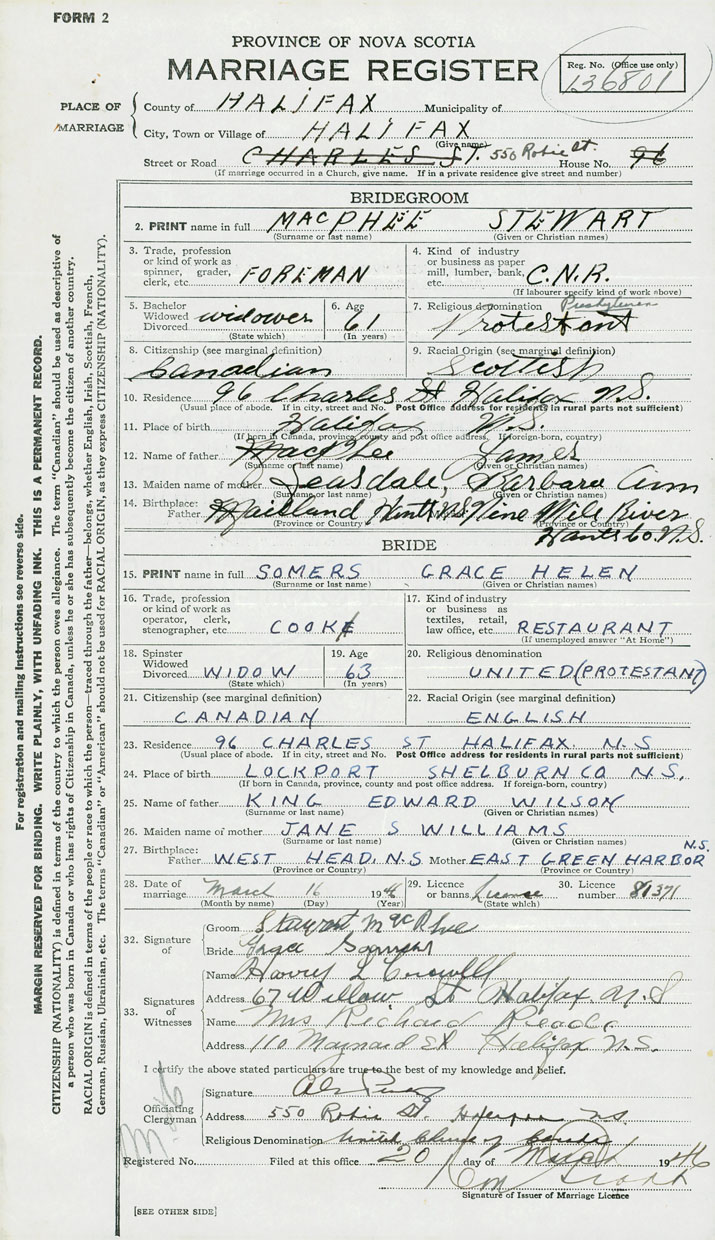 FORM 2
PROVINCE OF NOVA SCOTIA
MARRIAGE REGISTER
Reg. No. (Office use only)
136801
PLACE OF MARRIAGE
County of HALIFAX Municipality of
City, Town or Village of HALIFAX
(Give name)
Street or Road CHARLES ST. 550 Robie St. House No. 96
(If marriage occurred in a Church, give name. If in a private residence give street and number)
BRIDEGROOM
2. PRINT name in full MACPHEE STEWART
(Surname or last name) (Given or Christian names)
3. Trade, profession or kind of work as spinner, grader, clerk, etc. FOREMAN
4. Kind of industry or business as paper mill, lumber, bank, etc. C.N.R.
(If labourer specify kind of work above)
5. Bachelor Widowed Divorced widower (State which)
6. Age 61 (In years)
7. Religious denomination Presbyterian Protestant
8. Citizenship (see marginal definition) Canadian
9. Racial Origin (see marginal definition) Scottish
10. Residence 96 Charles St Halifax N.S.
(Usual place of abode. If in city, street and No. Post Office address for residents in rural parts not sufficient)
11. Place of birth Halifax N.S.
(If born in Canada, province, county and post office address. If foreign-born, country)
12. Name of father MacPhee James
(Surname or last name) (Given or Christian names)
13. Maiden name of mother Teasdale, Barbara Ann
(Surname or last name) (Given or Christian names)
14. Birthplace: Father Maitland Hants N.S. Nine Mile River
(Province or Country) (Province or Country)
Hants Co. N.S.
BRIDE
15. PRINT name in full SOMERS GRACE HELEN
(Surname or last name) (Given or Christian names)
16. Trade, profession or kind of work as operator, clerk, stenographer, etc. COOK
17. Kind of industry or business as textiles, retail, law office, etc. RESTAURANT
(If unemployed answer "At Home")
18. Spinster Widowed Divorced WIDOW (State which)
19. Age 63 (In years)
20. Religious denomination UNITED (PROTESTANT)
21. Citizenship (see marginal definition) CANADIAN
22. Racial Origin (see marginal definition) ENGLISH
23. Residence 96 CHARLES ST HALIFAX N.S
(Usual place of abode. If in city, street and No. Post Office address for residents in rural parts not sufficient)
24. Place of birth LOCKPORT SHELBURN CO N.S.
(If born in Canada, province, county and post office address. If foreign-born, country)
25. Name of father KING EDWARD WILSON
(Surname or last name) (Given or Christian names)
26. Maiden name of mother JANE S WILLIAMS
(Surname or last name) (Given or Christian names)
27. Birthplace: Father WEST HEAD, N.S Mother EAST GREEN HARBOR N.S.
(Province or Country) (Province or Country)
28. Date of marriage March 16 1946
(Month by name) (Day) (Year)
29. Licence or banns License (State which)
30. Licence number 81371
32. Signature of
Groom Stewart MacPhee
Bride Grace Sommers
33. Signatures of Witnesses
Name Harry L
Address 67 Willow St Halifax N S
Name Mrs Richard Reade
Address 110 Maynard St Halifax N.S.
I certify the above stated particulars are true to the best of my knowledge and belief.
Officiating Clergyman
Signature
Address 550 Robie St. Halifax N.S.
Religious Denomination United Church of Canada
Registered No. Filed at this office 20 day of March 1946
Signature of Issuer of Marriage Licence
[SEE OTHER SIDE]
For registration and mailing instructions see reverse side.
MARGIN RESERVED FOR BINDING. WRITE PLAINLY, WITH UNFADING INK. THIS IS A PERMANENT RECORD.
CITIZENSHIP (NATIONALITY) is defined in terms of the country to which the person owes allegiance. The term "Canadian" should be used as descriptive of
a person who was born in Canada or who has rights of Citizenship in Canada, unless he or she has subsequently become the citizen of another country.
RACIAL ORIGIN is defined in terms of the people or race to which the person—traced through the father—belongs, whether English, Irish, Scottish, French,
German, Russian, Ukrainian, etc. The terms "Canadian" or "American" should not be used for RACIAL ORIGIN, as they express CITIZENSHIP (NATIONALITY).